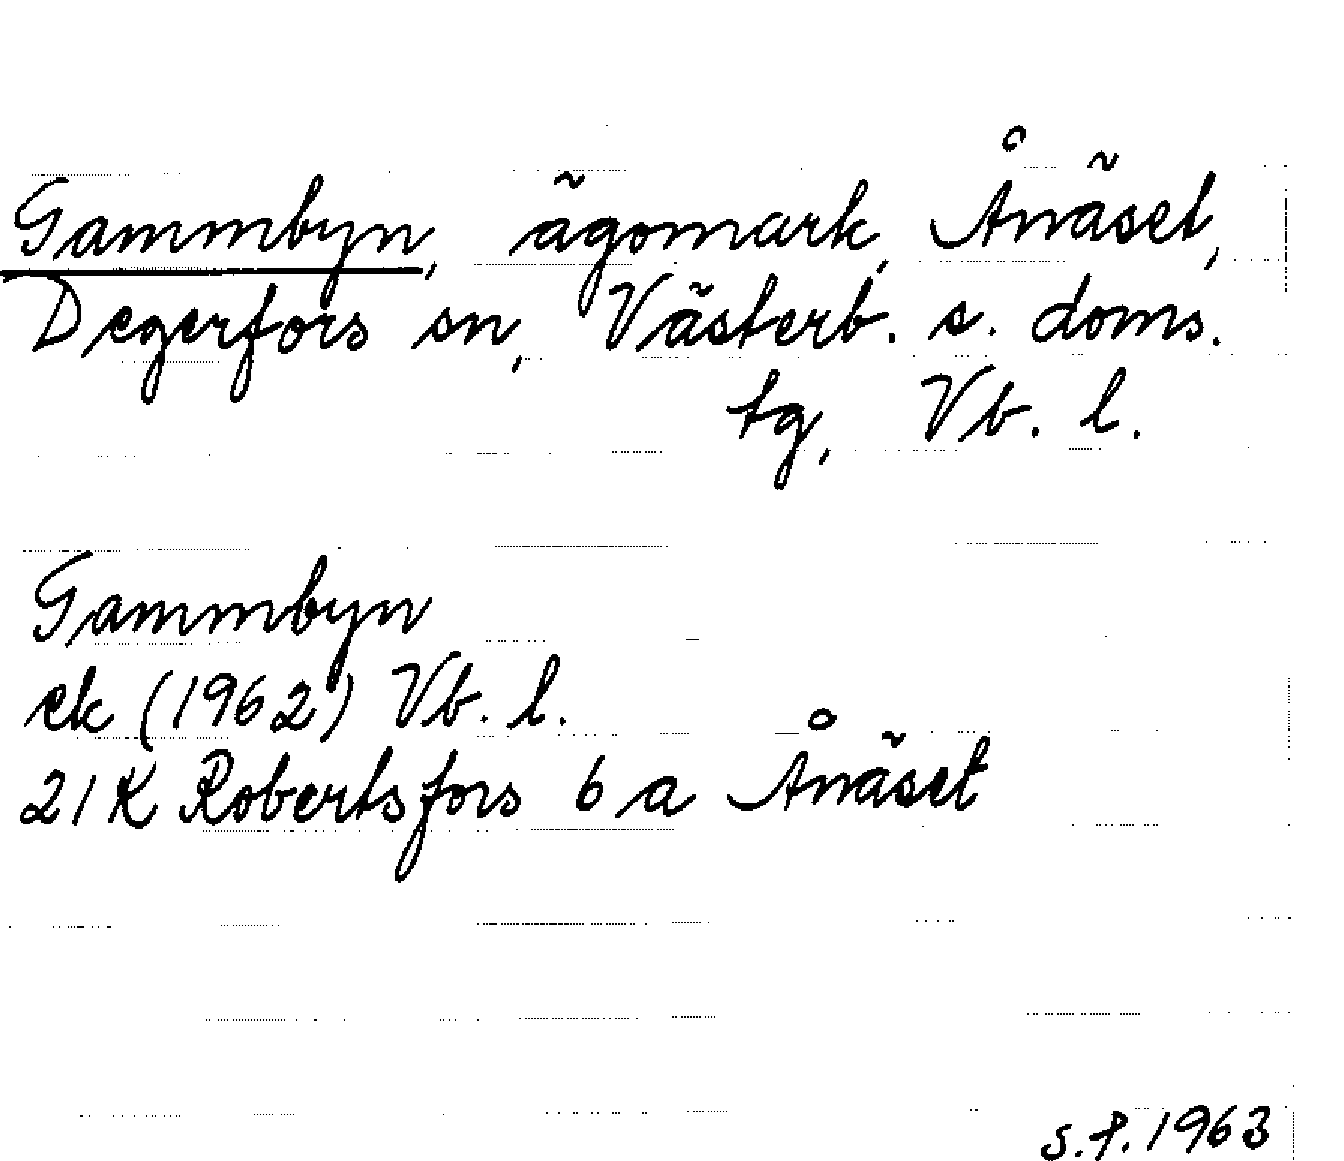 Gammbyn, ägomark, Ånäset,
Degerfors sn, Västerb. s. doms.
tg, Vb. l.
Gammbyn
ek (1962) Vb. l.
21K Robertsfors 6 a Ånäset
S.P. 1963